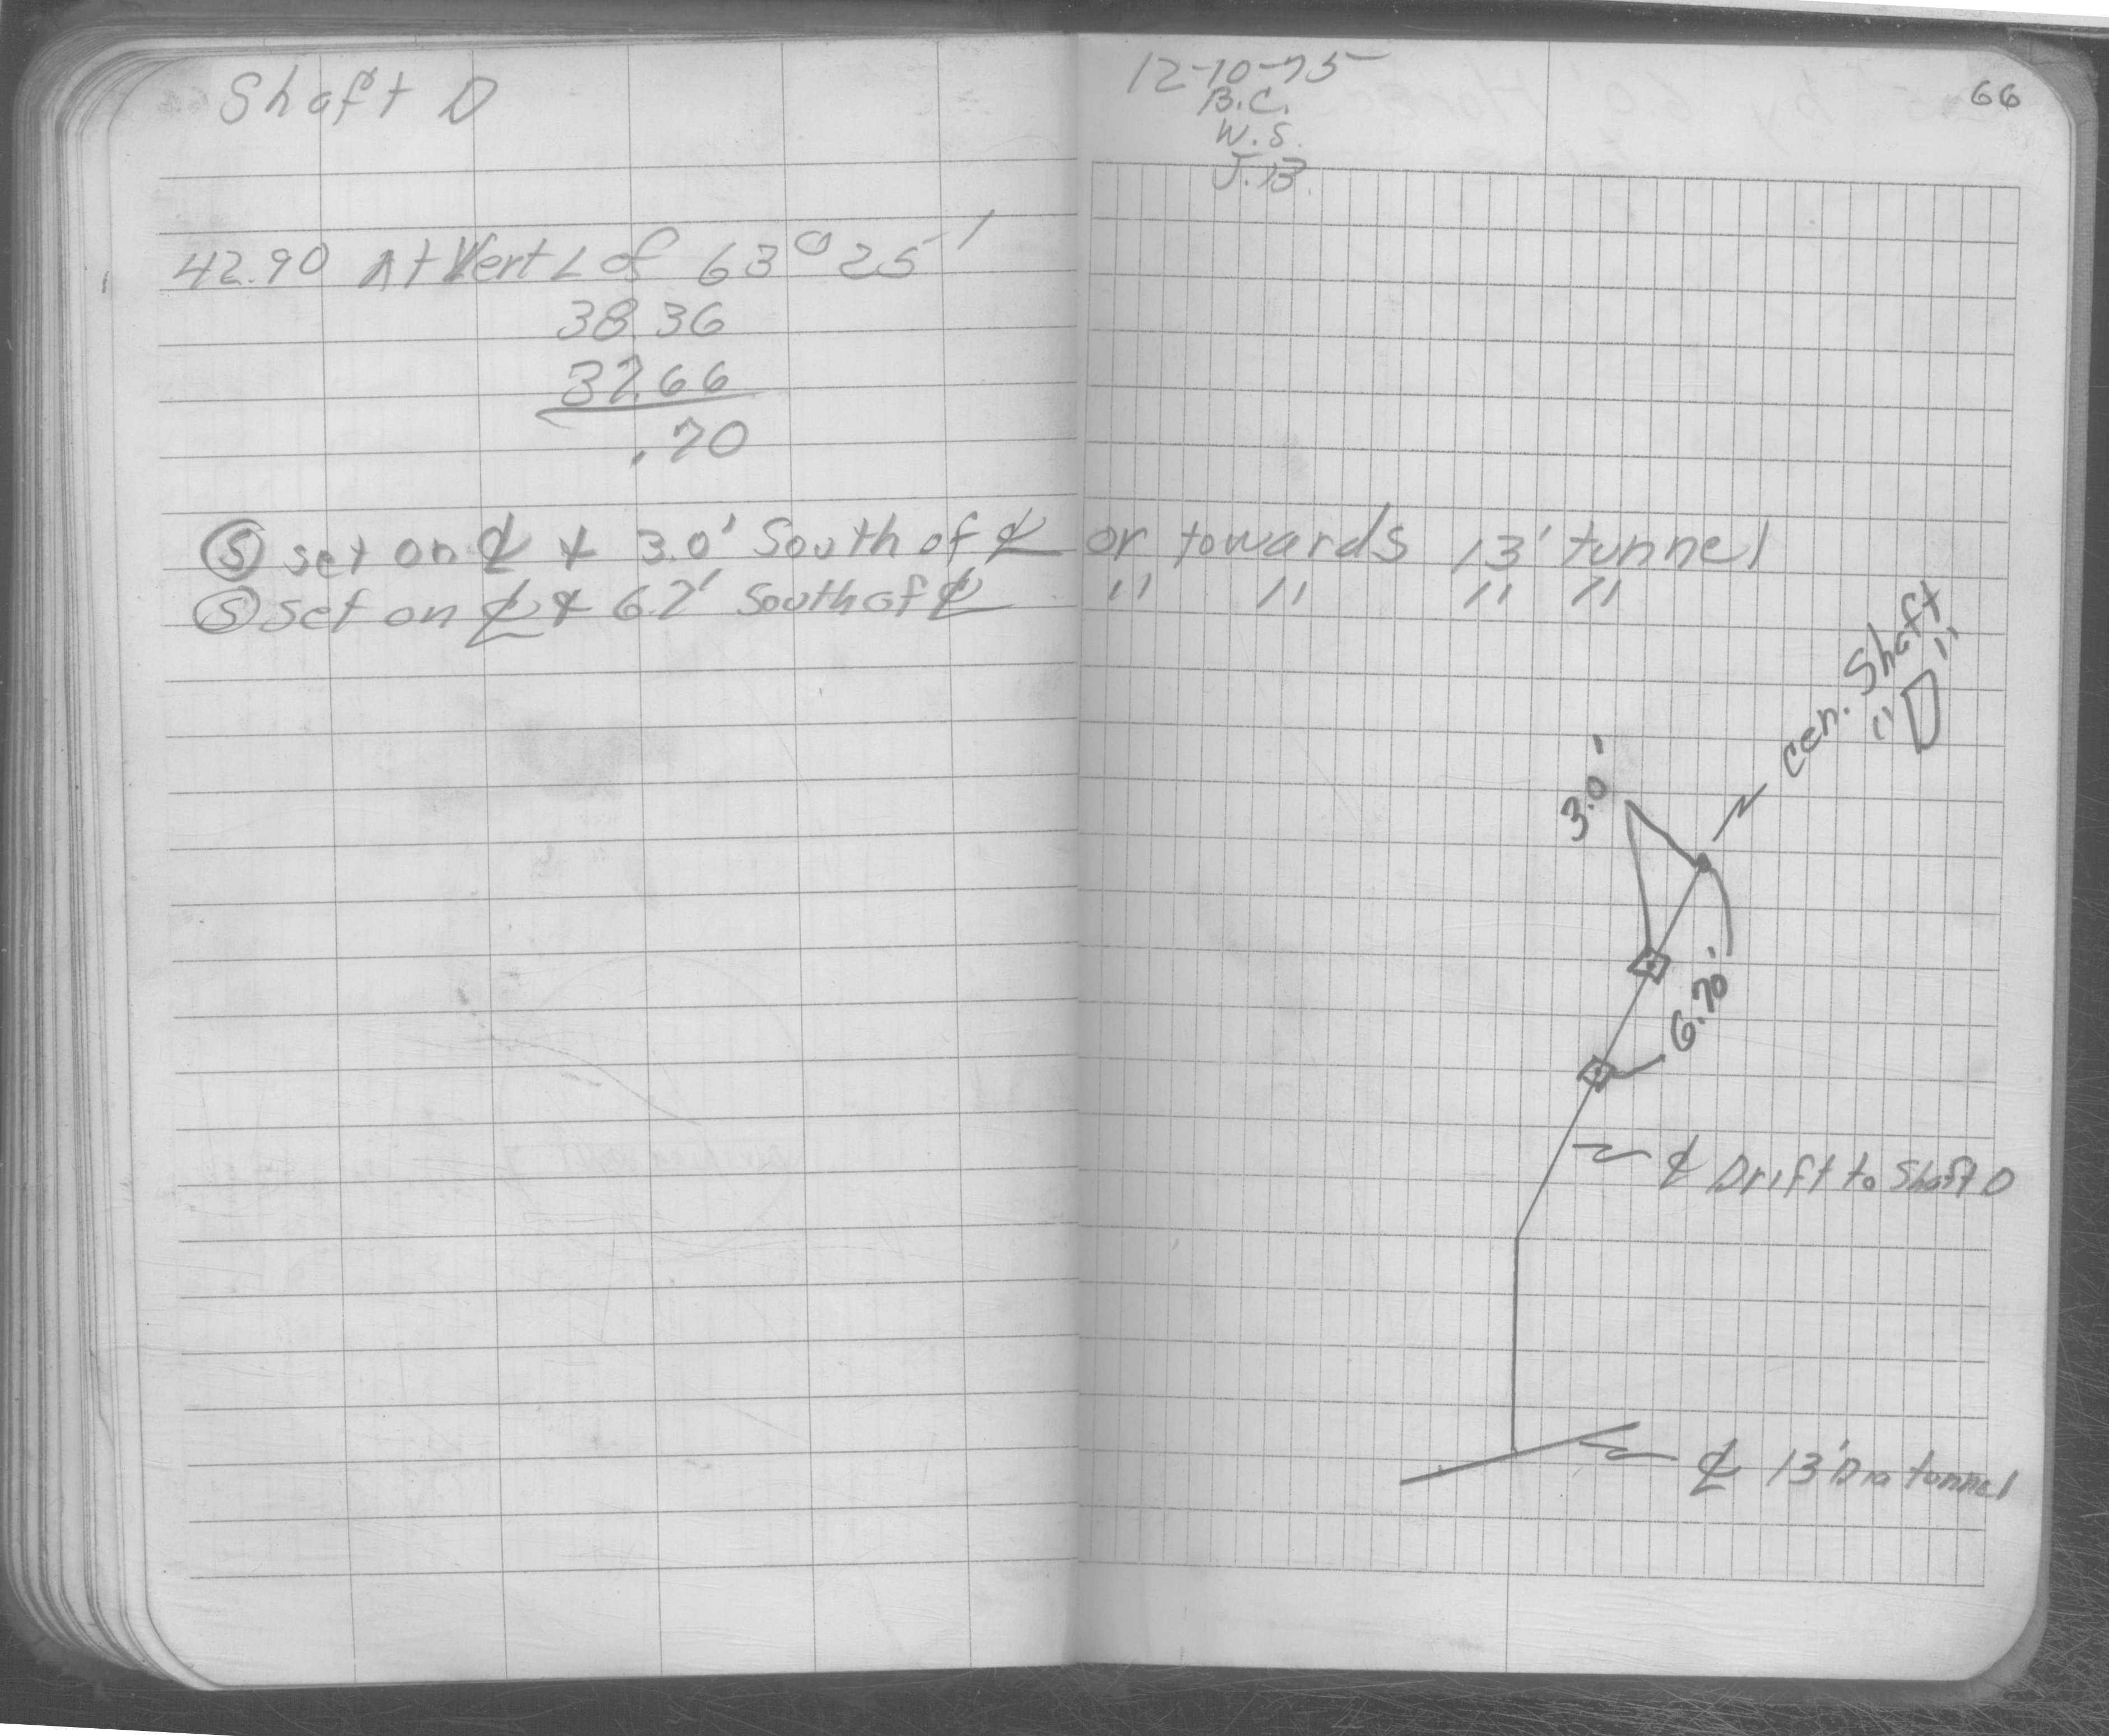 Shaft D
42.90 At Vert ∠ of 63° 25'
38.36
37.66
.70
Ⓢ set on ℄ & 3.0' South of ℄ or towards 13' tunnel
Ⓢ set on ℄ & 6.7' South of ℄ " " " "
12-10-75
B.C.
W.S.
J.B.
66
cen. Shaft
"D"
3.0'
6.70'
℄ Drift to Shaft D
℄ 13' Dia tunnel